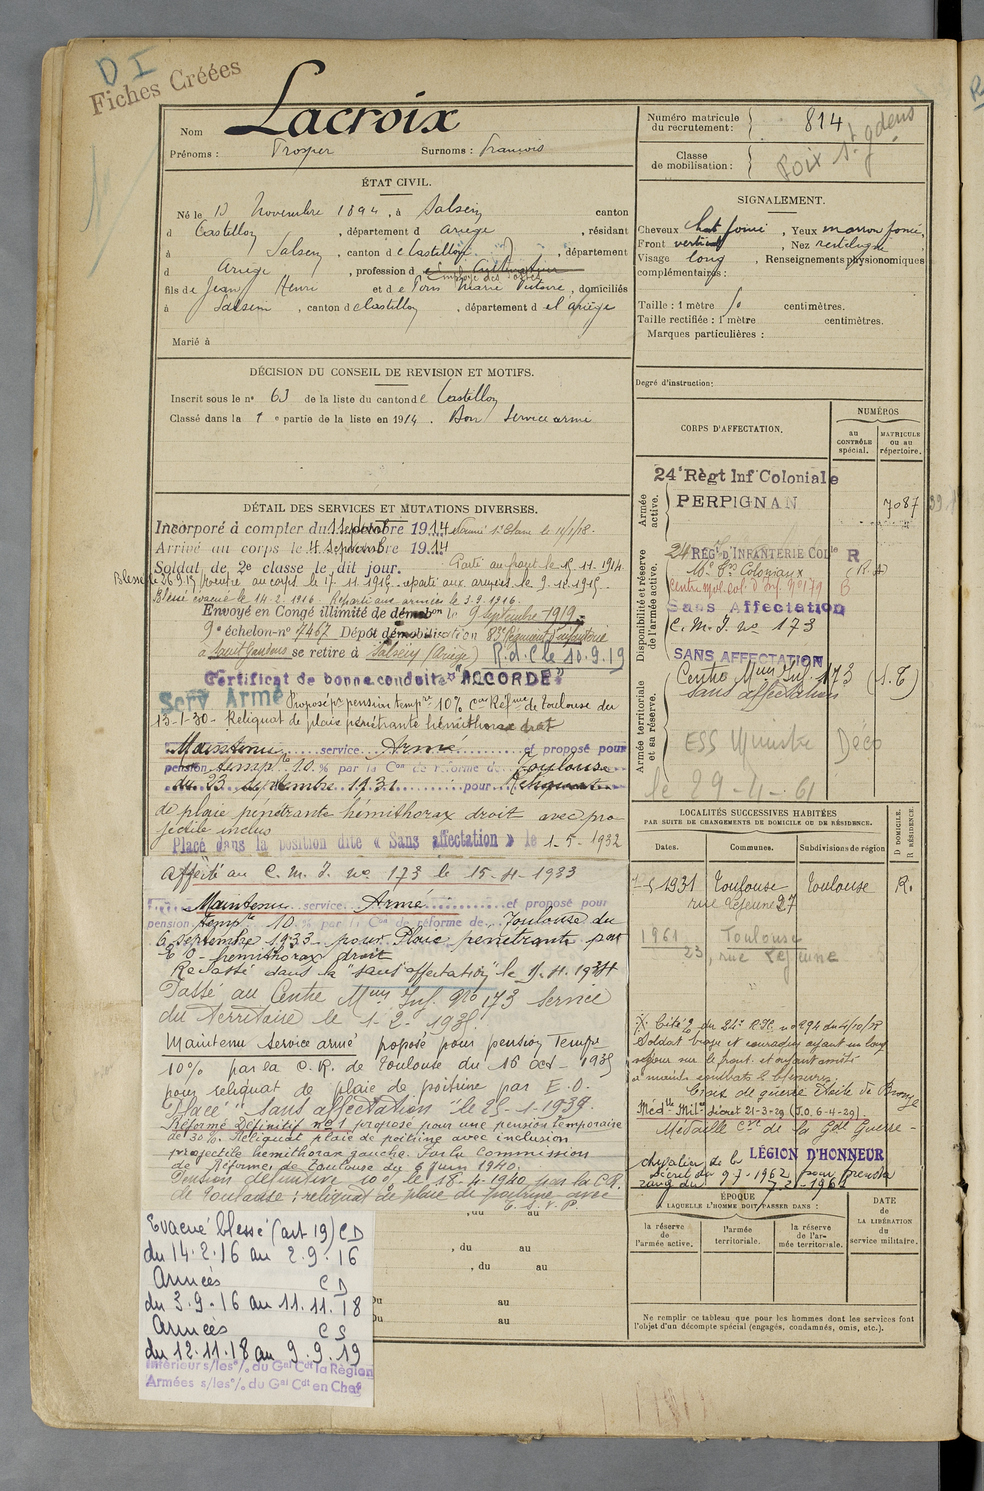 D I
Fiches Créées
Nom Lacroix
Prénoms : Prosper Surnoms : François
Numéro matricule du recrutement : 814
Classe de mobilisation :
Foix St gdens
ÉTAT CIVIL.
Né le 13 Novembre 1894, à Salsein canton
d Castillon, département d Ariège, résidant
à Salsein, canton d e Castillon, département
d Ariège, profession d e Cultivateur
employé des Postes
fils de Jean Henri et d e , domiciliés
à Salsein, canton d e Castillon, département d e l'ariège
Marié à
SIGNALEMENT.
Cheveux chat foncé, Yeux marron foncé,
Front vertical, Nez rectiligne
Visage long, Renseignements physionomiques
complémentaires :
Taille : 1 mètre centimètres.
Taille rectifiée : 1 mètre centimètres.
Marques particulières :
Degré d'instruction :
DÉCISION DU CONSEIL DE REVISION ET MOTIFS.
Inscrit sous le n° 63 de la liste du canton de Castillon
Classé dans la 1 e partie de la liste en 1914. Bon Service armé
DÉTAIL DES SERVICES ET MUTATIONS DIVERSES.
Incorporé à compter du 1 septembre 1914
Arrivé au corps le 4 septembre 1914
Soldat de 2e classe le dit jour. Parti au front le 15.11.1914.
Blessé le 26.9.15 rentré au corps le 17.11.1915. reparti aux armées le 9.11.1915
Blessé évacué le 14.2.1916. Reparti aux armées le 3.9.1916.
Envoyé en Congé illimité de démobon le 9 septembre 1919.
9e échelon-n° 7467 Dépôt démobilisation 83e Régiment d'infanterie
à Saint Gaudens se retire à Salsein (Ariège) R.d.C le 10.9.19
Certificat de bonne conduite "ACCORDÉ"
Serv Armé Proposé pr pension tempre 10% Con Réfme de Toulouse du
13-1-30 - Reliquat de plaie pénétrante hémithorax droit
Maintenu service Armé et proposé pour
pension temp 10 % par la Con de réforme de Toulouse
du 23 septembre 1931 pour Reliquat
de plaie pénétrante hémithorax droit avec pro
jectile inclus
Placé dans la position dite « Sans affectation » le 1-5-1932
Affecté au C.M.I. no 173 le 15-4-1933
Maintenu service Armé et proposé pour
pension temp 10 % par la Con de réforme de Toulouse du
6 septembre 1933 pour Plaie pénétrante par
E O - hémithorax droit
Repassé dans la "sans affectation" le
Passé au Centre Mum Inf. No 173 Service
du Territoire le 1-2-1935.
Maintenu service armé proposé pour pension Tempre
10% par la C.R. de Toulouse du 16 oct 1935
pour reliquat de plaie de poitrine par E.O.
Placé "Sans affectation" le 25-1-1938.
Réformé Définitif no 1 proposé pour une pension temporaire
de 30%. Reliquat plaie de poitrine avec inclusion
projectile hémithorax gauche. Par la Commission
de Réforme de Toulouse du 6 juin 1940.
Pension définitive 10% le 18-4-1940 par la C.R.
de Toulouse : reliquat de plaie de poitrine avec
T.S.V.P.
, du au
, du au
, du au
Du au
Du au
Evacué blessé (art 19) C D
du 14.2.16 au 2.9.16
Armées C D
du 3.9.16 au 11.11.18
Armées C S
du 12.11.18 au 9.9.19
Intérieur s/les °/. du Gal Cdt la Région
Armées s/les °/. du Gal Cdt en Chef
CORPS D'AFFECTATION.
NUMÉROS
au CONTRÔLE spécial.
MATRICULE ou au répertoire.
Armée active.
24e Règt Inf Coloniale
PERPIGNAN
7087
Disponibilité et réserve de l'armée active.
24 RÉGt D'INFANTERIE Colle R
Centre mob. col. d'Inf. No 179
Sans Affectation
C.M.I. no 173
SANS AFFECTATION
Armée territoriale et sa réserve.
Centre Mum Inf. 173 (S.T)
sans affectation
ESS Ministre Déco
le 29-4-61
LOCALITÉS SUCCESSIVES HABITÉES
PAR SUITE DE CHANGEMENTS DE DOMICILE OU DE RÉSIDENCE.
D DOMICILE. R RÉSIDENCE.
Dates. Communes. Subdivisions de région
1931 Toulouse Toulouse R.
rue Lejeune 27
1961 Toulouse
23, rue Lejeune
Cité du 24e R.I.C. no 294 du 4/10/18
Soldat brave et courageux ayant un long
séjour sur le front et ayant assisté
à maints combats 2 blessures.
Croix de guerre Etoile de Bronze
Médlle Milre décret 21-3-29 (J.O. 6-4-29).
Médaille Cve de la Gde Guerre -
chevalier de la LÉGION D'HONNEUR
décret du 9.7-1962 pour prendre
rang du 1962
ÉPOQUE
À LAQUELLE L'HOMME DOIT PASSER DANS :
la réserve de l'armée active.
l'armée territoriale.
la réserve de l'armée territoriale.
DATE DE LA LIBÉRATION du service militaire.
Ne remplir ce tableau que pour les hommes dont les services font
l'objet d'un décompte spécial (engagés, condamnés, omis, etc.).